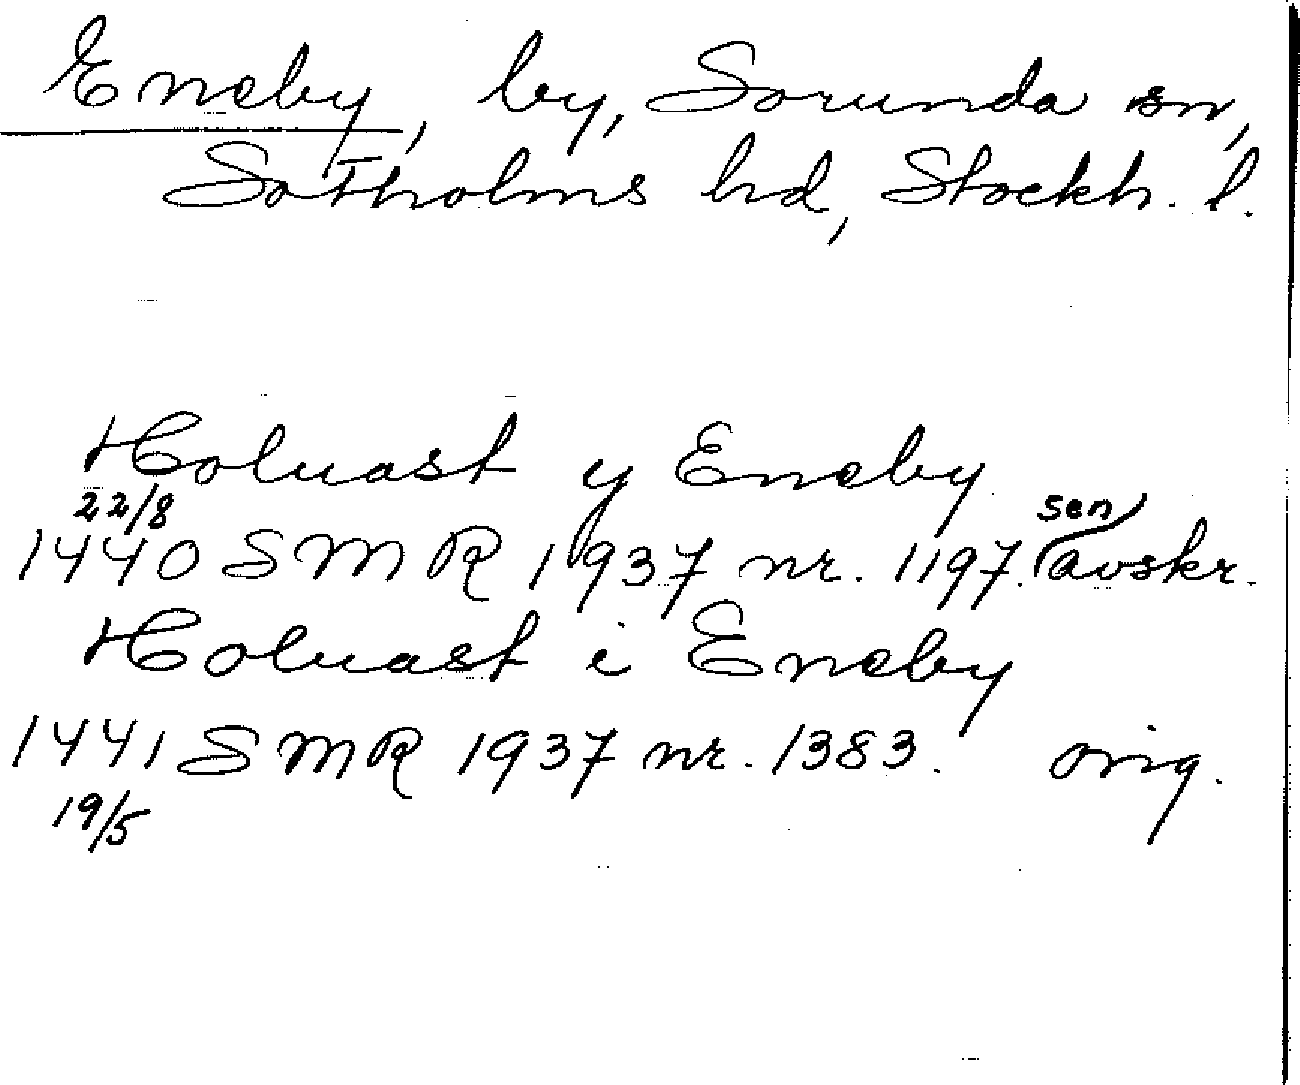 Eneby, by, Sorunda sn,
Sotholms hd, Stockh. l.
Holuast y Eneby
22/8
1440 SMR 1937 nr. 1197. sen avskr.
Holuast i Eneby
1441 SMR 1937 nr. 1383. orig.
19/5